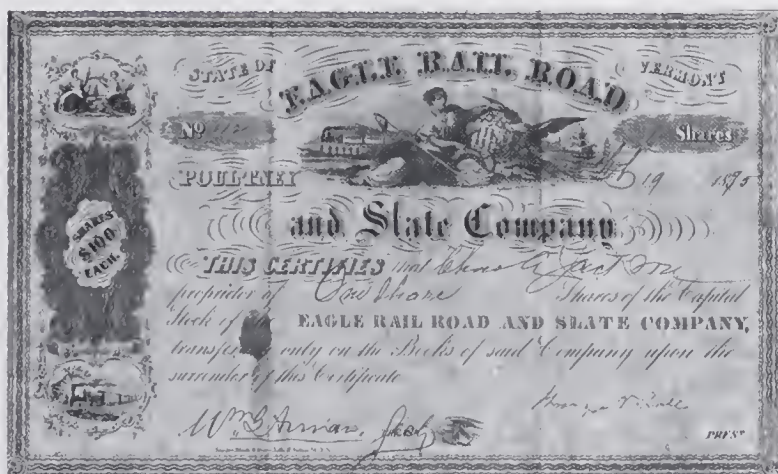 STATE OF
EAGLE RAIL ROAD
VERMONT
No
Shares
POULTNEY
19 1895
and Slate Company
SHARES
$100
EACH.
THIS CERTIFIES that Chas Jackson
proprietor of One Share Shares of the Capital
Stock of EAGLE RAIL ROAD AND SLATE COMPANY,
transfer only on the Books of said Company upon the
surrender of this Certificate
Wm
PREST